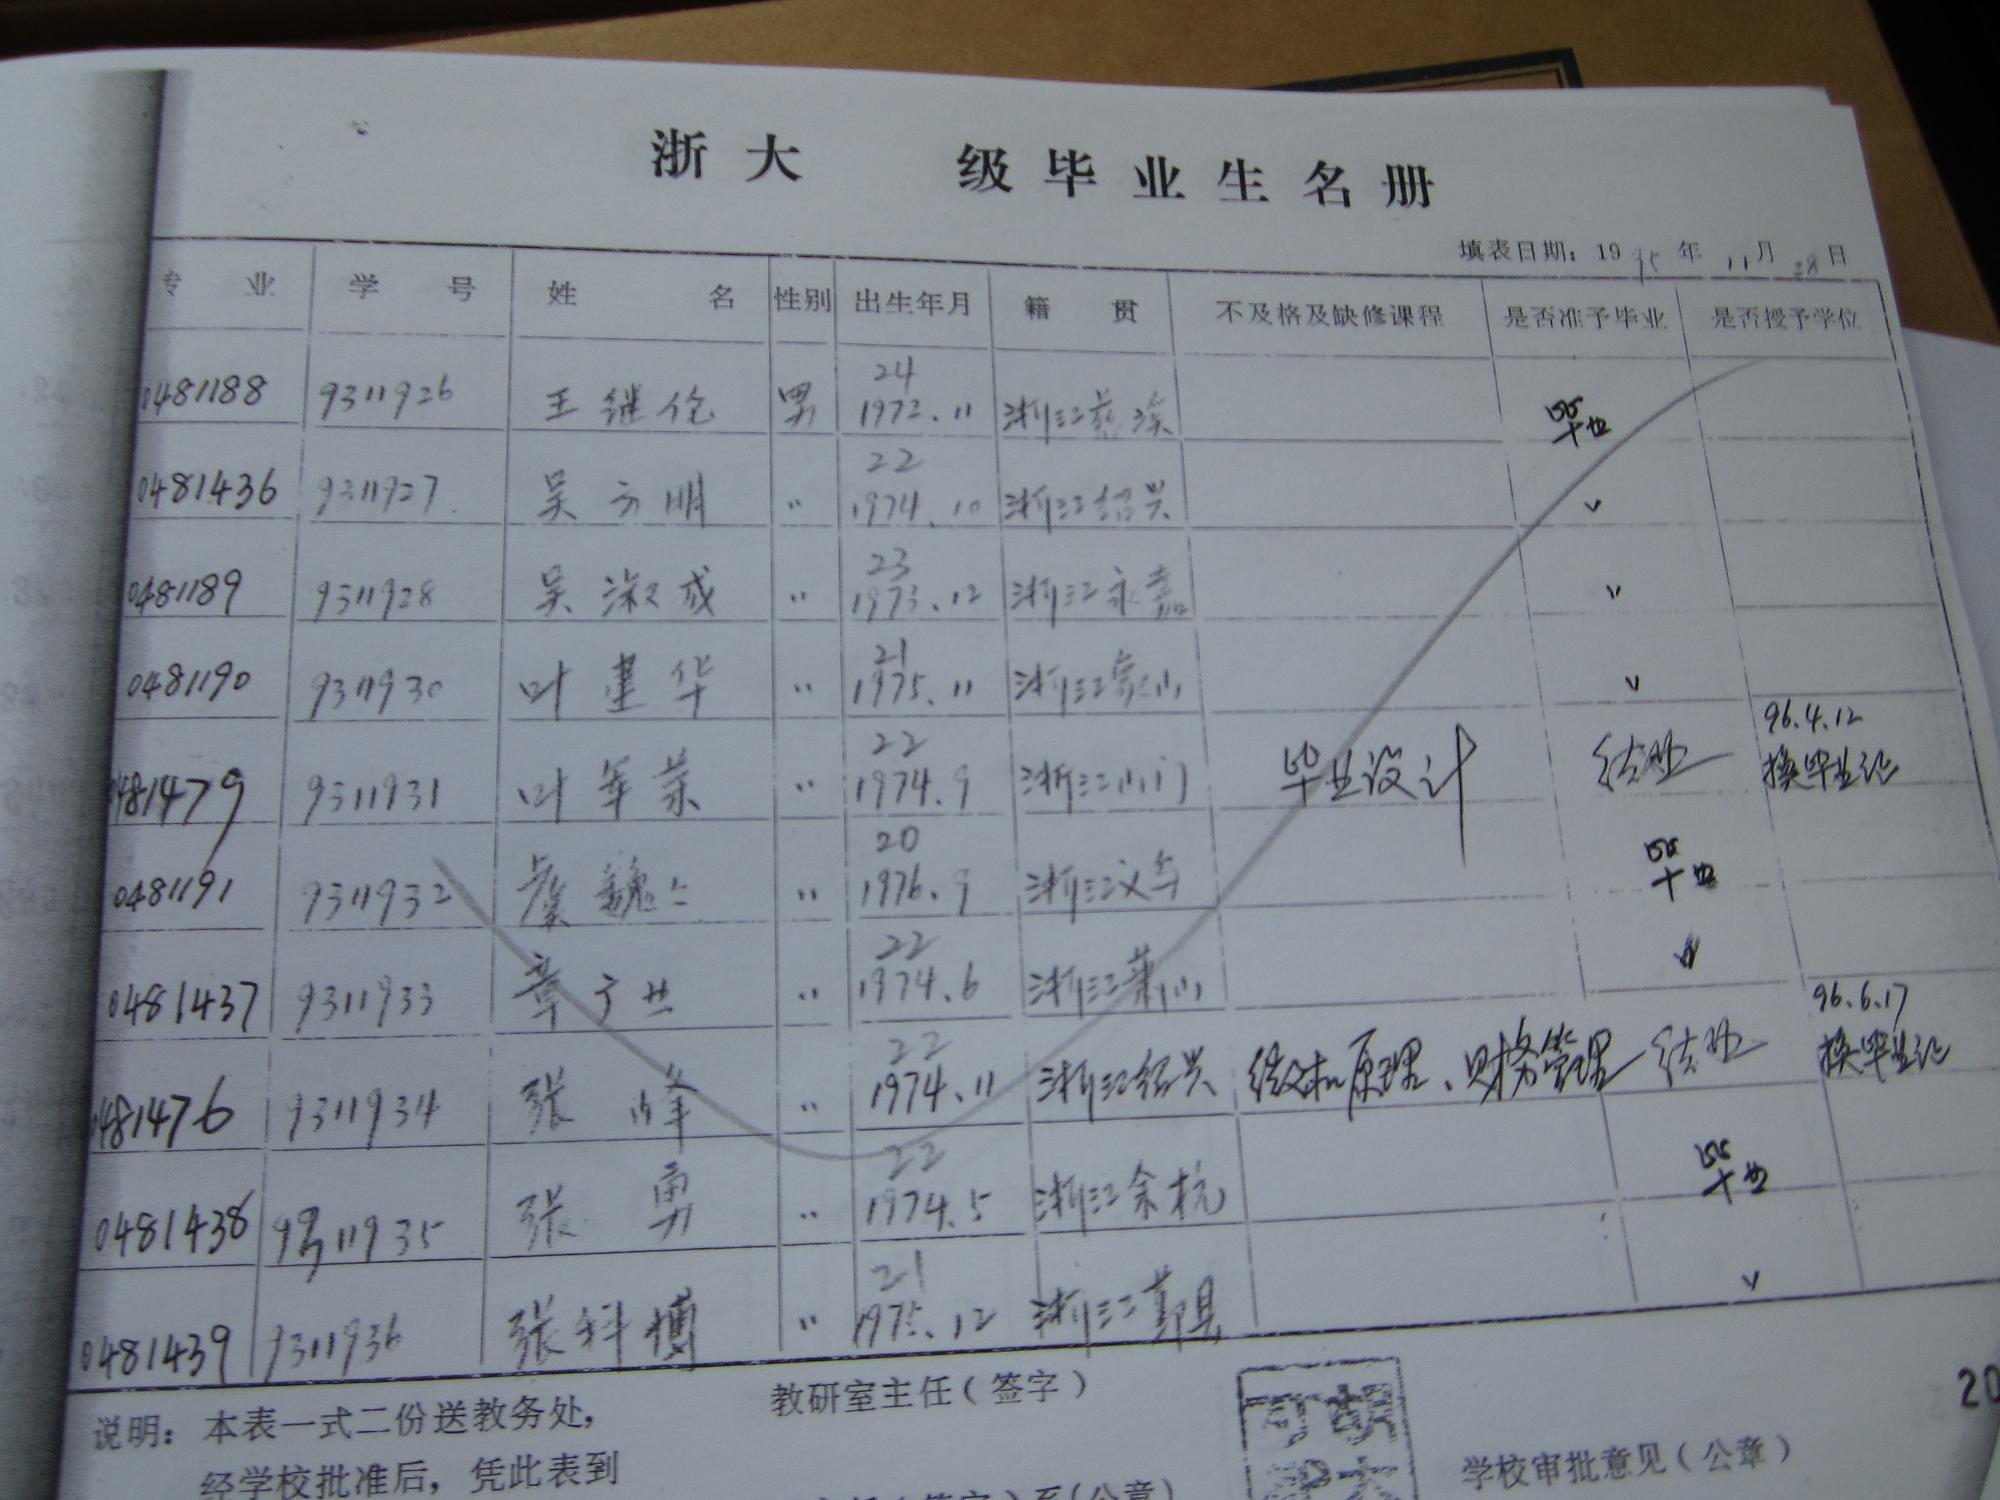 浙大 级毕业生名册
填表日期：1995年11月28日
专业 学号 姓名 性别 出生年月 籍贯 不及格及缺修课程 是否准予毕业 是否授予学位
24
0481188 9311926 王继伦 男 1972.11 浙江慈溪 毕业
22
0481436 9311927 吴方明 〃 1974.10 浙江绍兴 〃
23
0481189 9311928 吴淑成 〃 1973.12 浙江永嘉 〃
21
0481190 9311930 叶建华 〃 1975.11 浙江象山 〃
22 96.4.12
0481479 9311931 叶军荣 〃 1974.9 浙江 毕业设计 结业 换毕业证
20
0481191 9311932 虞巍 〃 1976.9 浙江义乌 毕业
22
0481437 9311933 章方 〃 1974.6 浙江萧山 〃
22 96.6.17
0481476 9311934 张峰 〃 1974.11 浙江绍兴 微机原理、财务管理 结业 换毕业证
22
0481438 9311935 张勇 〃 1974.5 浙江余杭 毕业
21
0481439 9311936 张科博 〃 1975.12 浙江鄞县 〃
说明：本表一式二份送教务处，
经学校批准后，凭此表到
教研室主任（签字）
学校审批意见（公章）
20